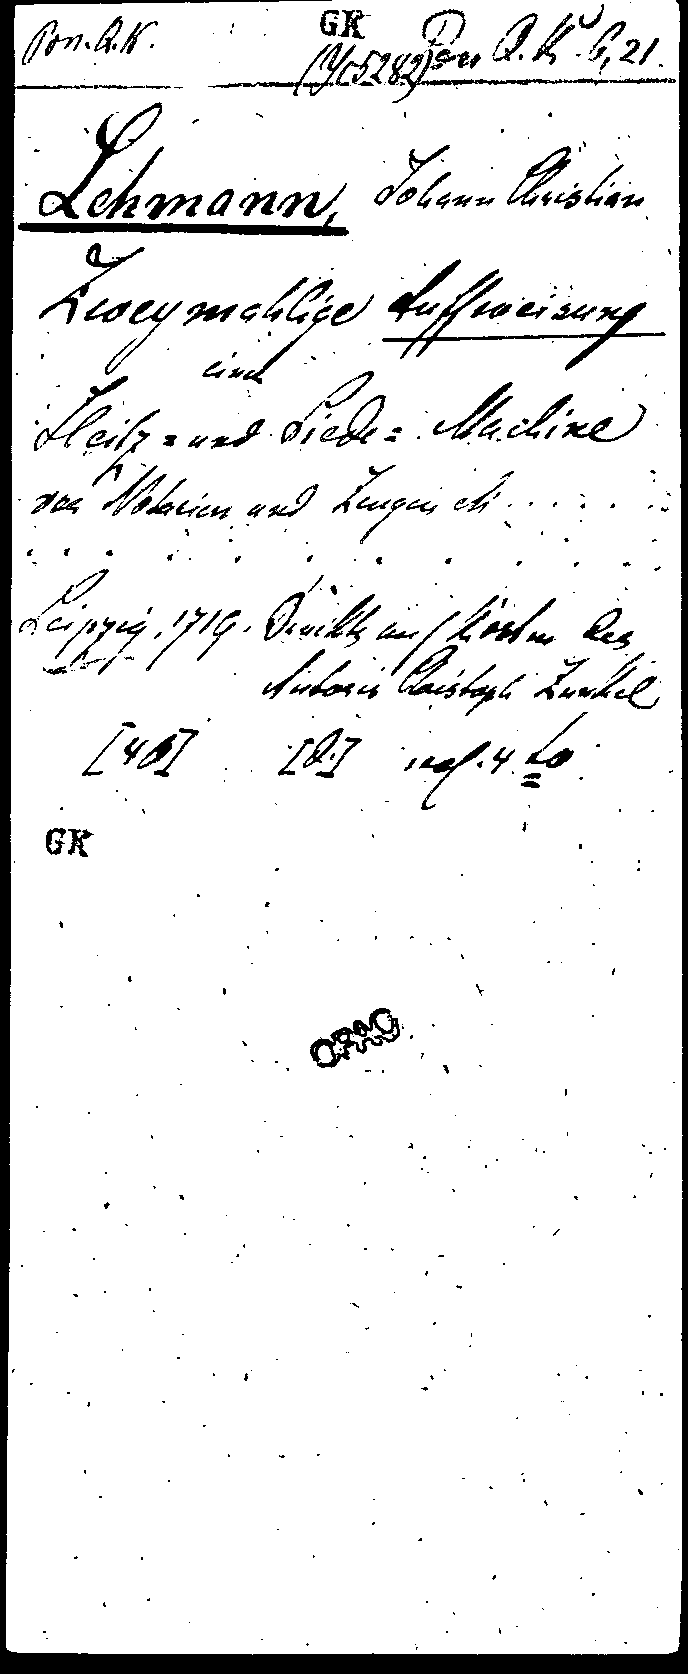 Pon. Q.K. GK
(Yc5282) Pon Q. K. 6, 21.
Lehmann, Johann Christian
Zweymahlige Auffweisung
einer
Heitz= und Siede= Machine
von Notarien und Zeugen etc. . . . . .
Leipzig. 1719. Druckts auf Kosten des
Autoris Christoph Zunkel
[4 B] [8.] 4 to
GK